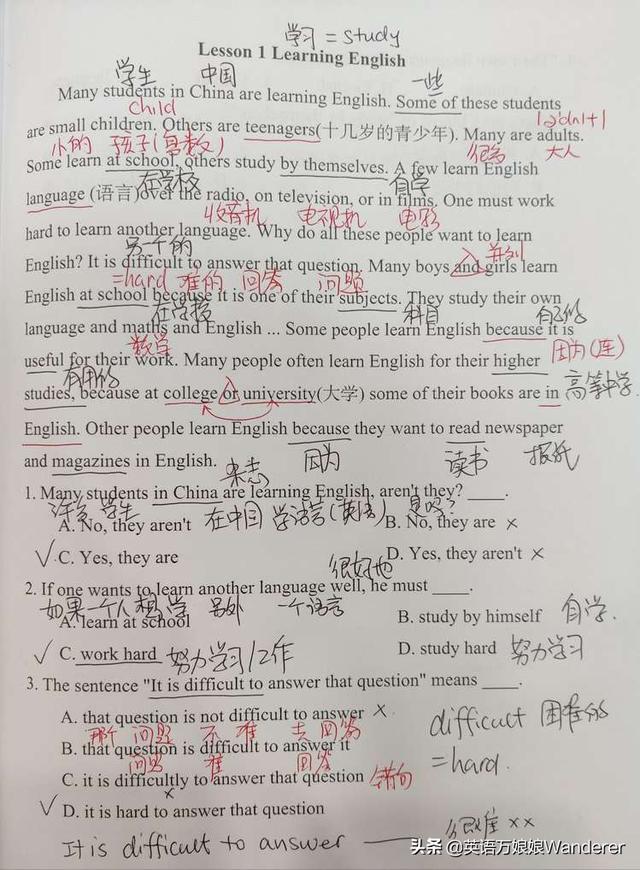 学习 = study
Lesson 1 Learning English
学生 中国 一些
Many students in China are learning English. Some of these students
child
are small children. Others are teenagers(十几岁的青少年). Many are adults.
小的 孩子(复数) 很多 大人
Some learn at school, others study by themselves. A few learn English
在学校 自学
language (语言)over the radio, on television, or in films. One must work
收音机 电视机 电影
hard to learn another language. Why do all these people want to learn
另一个的
English? It is difficult to answer that question. Many boys and girls learn
=hard 难的 回答 问题 并列
English at school because it is one of their subjects. They study their own
在学校 科目 自己的
language and maths and English ... Some people learn English because it is
数学
useful for their work. Many people often learn English for their higher 因为(连)
有用的
studies, because at college or university(大学) some of their books are in 高等中学
English. Other people learn English because they want to read newspaper
and magazines in English.
杂志 因为 读书 报纸
1. Many students in China are learning English, aren't they? ____.
许多 学生 在中国 学语言(英语) 是吗?
A. No, they aren't B. No, they are ×
✓ C. Yes, they are D. Yes, they aren't ×
很好地
2. If one wants to learn another language well, he must ____.
如果一个人想学 另外 一个语言
A. learn at school B. study by himself 自学.
✓ C. work hard 努力学习/工作 D. study hard 努力学习
3. The sentence "It is difficult to answer that question" means ____.
A. that question is not difficult to answer ×
那个 问题 不 难 去回答
B. that question is difficult to answer it
问题 难 回答
C. it is difficultly to answer that question 错的
×
✓ D. it is hard to answer that question
difficult 困难的
=hard.
很难 ××
It is difficult to answer ____
头条 @英语万娘娘Wanderer